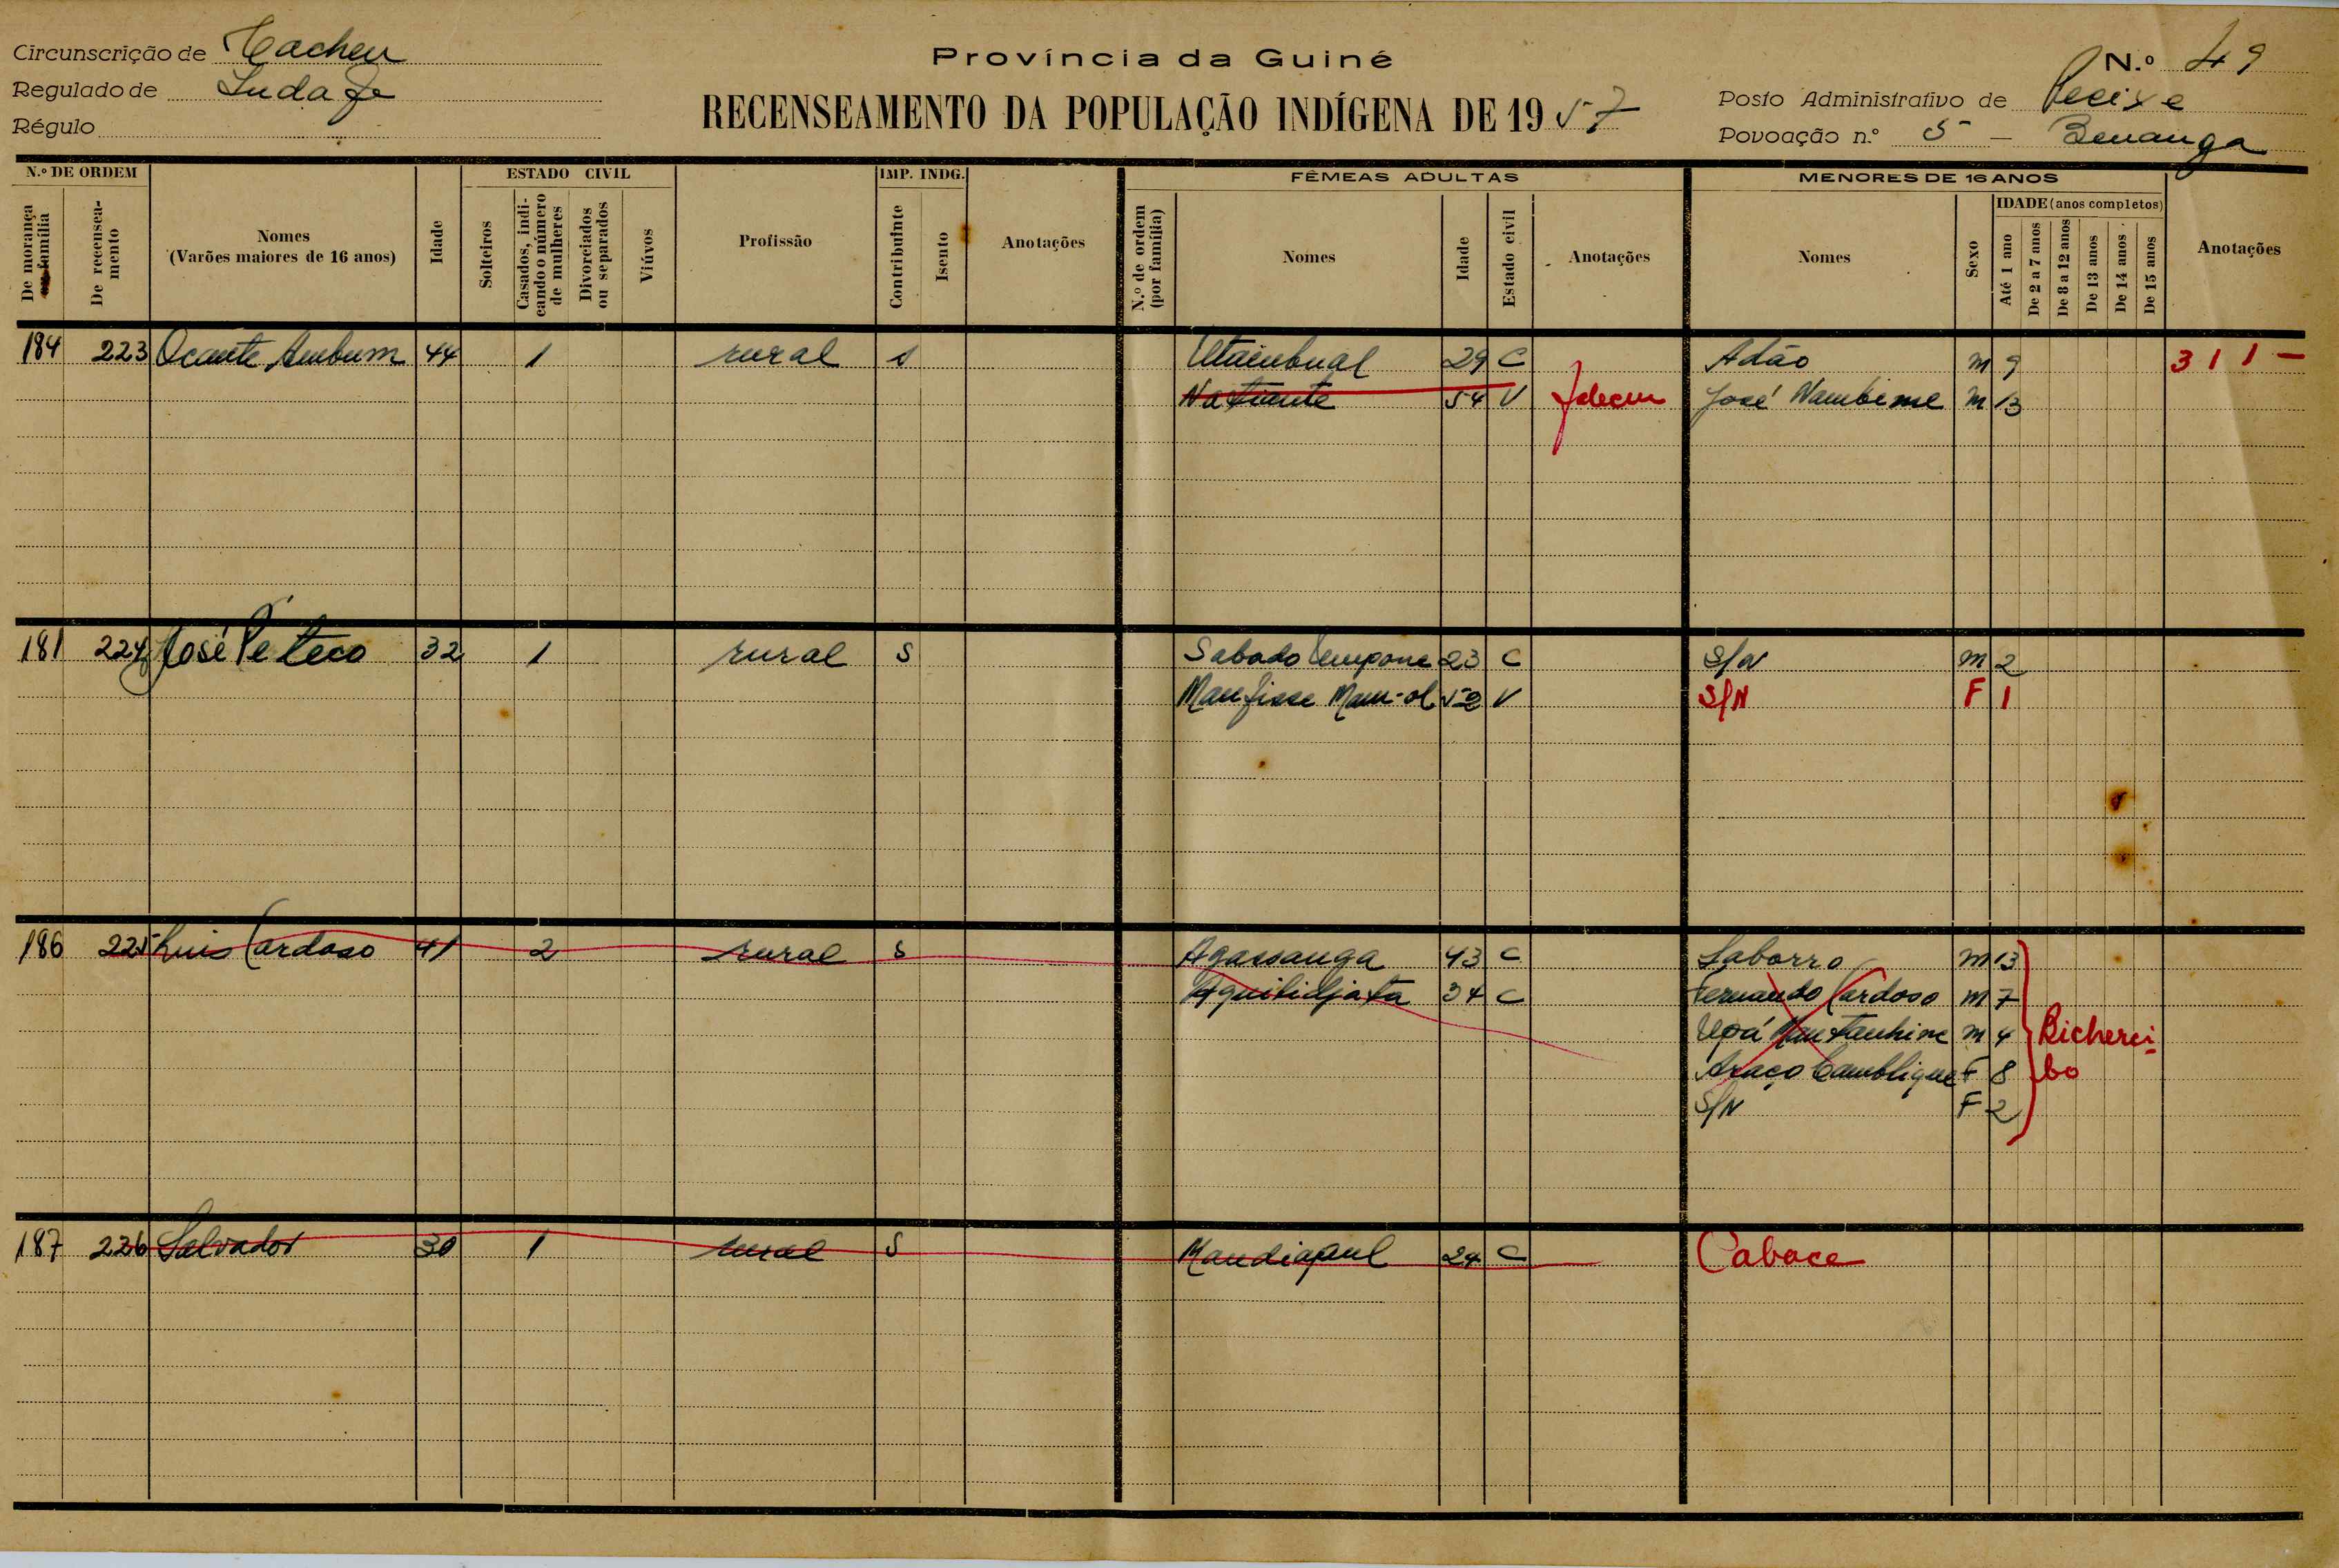 Circunscrição de Cacheu
Província da Guiné
N.º 49
Regulado de
Régulo
RECENSEAMENTO DA POPULAÇÃO INDÍGENA DE 1957
Posto Administrativo de Pecixe
Povoação n.º 5 - Benanga
N.º DE ORDEM
ESTADO CIVIL
IMP. INDG.
FÊMEAS ADULTAS
MENORES DE 16 ANOS
De morança ou família
De recenseamento
Nomes
(Varões maiores de 16 anos)
Idade
Solteiros
Casados, indicando o número de mulheres
Divorciados ou separados
Viúvos
Profissão
Contribuinte
Isento
Anotações
N.º de ordem (por família)
Nomes
Idade
Estado civil
Anotações
Nomes
Sexo
IDADE (anos completos)
Até 1 ano
De 2 a 7 anos
De 8 a 12 anos
De 13 anos
De 14 anos
De 15 anos
Anotações
184 223 Ocante Ambum 44 1 rural s 29 C Adão M 9 311-
Natiante 54 V M 13
José
181 224 José Peteco 32 1 rural S Sabado 23 C S/N M 2
52 V S/N F 1
186 225 Luis Cardoso 41 2 rural s Agassanga 43 C Laborro M 13
Aquibidjata 34 C Fernando Cardoso M 7
Upá M 4
F 8
S/N F 2
187 226 Salvador 30 1 rural S Mandiapul 24 C Caboce